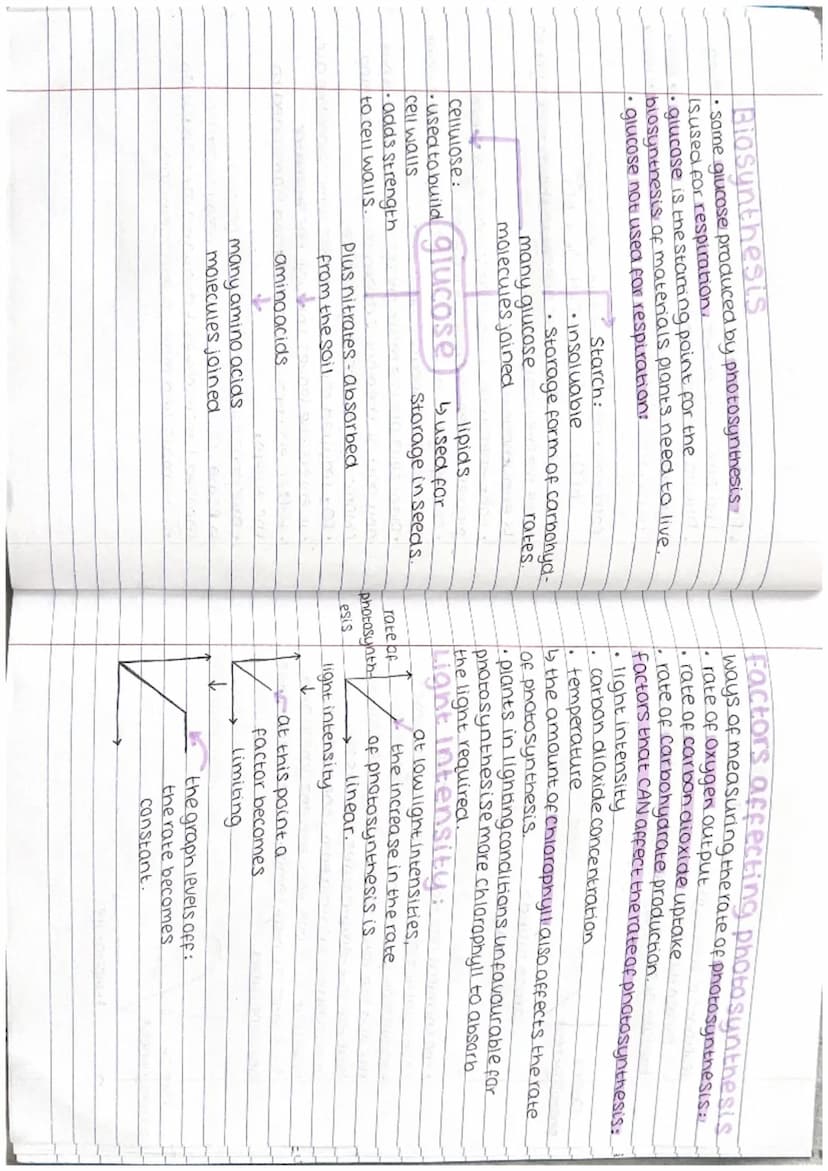 Biosynthesis
• some glucose produced by photosynthesis
is used for respiration.
• glucose is the starting point for the
biosynthesis of materials plants need to live.
• glucose not used for respiration:
Starch:
• insoluable
• Storage form of carbohyd-
rates.
many glucose
molecules joined
cellulose:
• used to build
cell walls
• adds strength
to cell walls.
glucose
lipids
↳ used for
Storage in seeds.
Plus nitrates - absorbed
from the soil
↓
amino acids
↓
many amino acids
molecules joined
Factors affecting photosynthesis
ways of measuring the rate of photosynthesis:
• rate of oxygen output
• rate of carbon dioxide uptake
• rate of carbohydrate production.
factors that CAN affect the rate of photosynthesis:
• light intensity
• carbon dioxide concentration
• temperature
↳ the amount of chlorophyll also affects the rate
of photosynthesis.
• plants in lighting conditions unfavourable for
photosynthesise more chlorophyll to absorb
the light required.
Light intensity:
rate of
photosynth-
esis
light intensity
at low light intensities,
the increase in the rate
of photosynthesis is
linear.
↓
at this point a
factor becomes
limiting
↓
the graph levels off:
the rate becomes
constant.